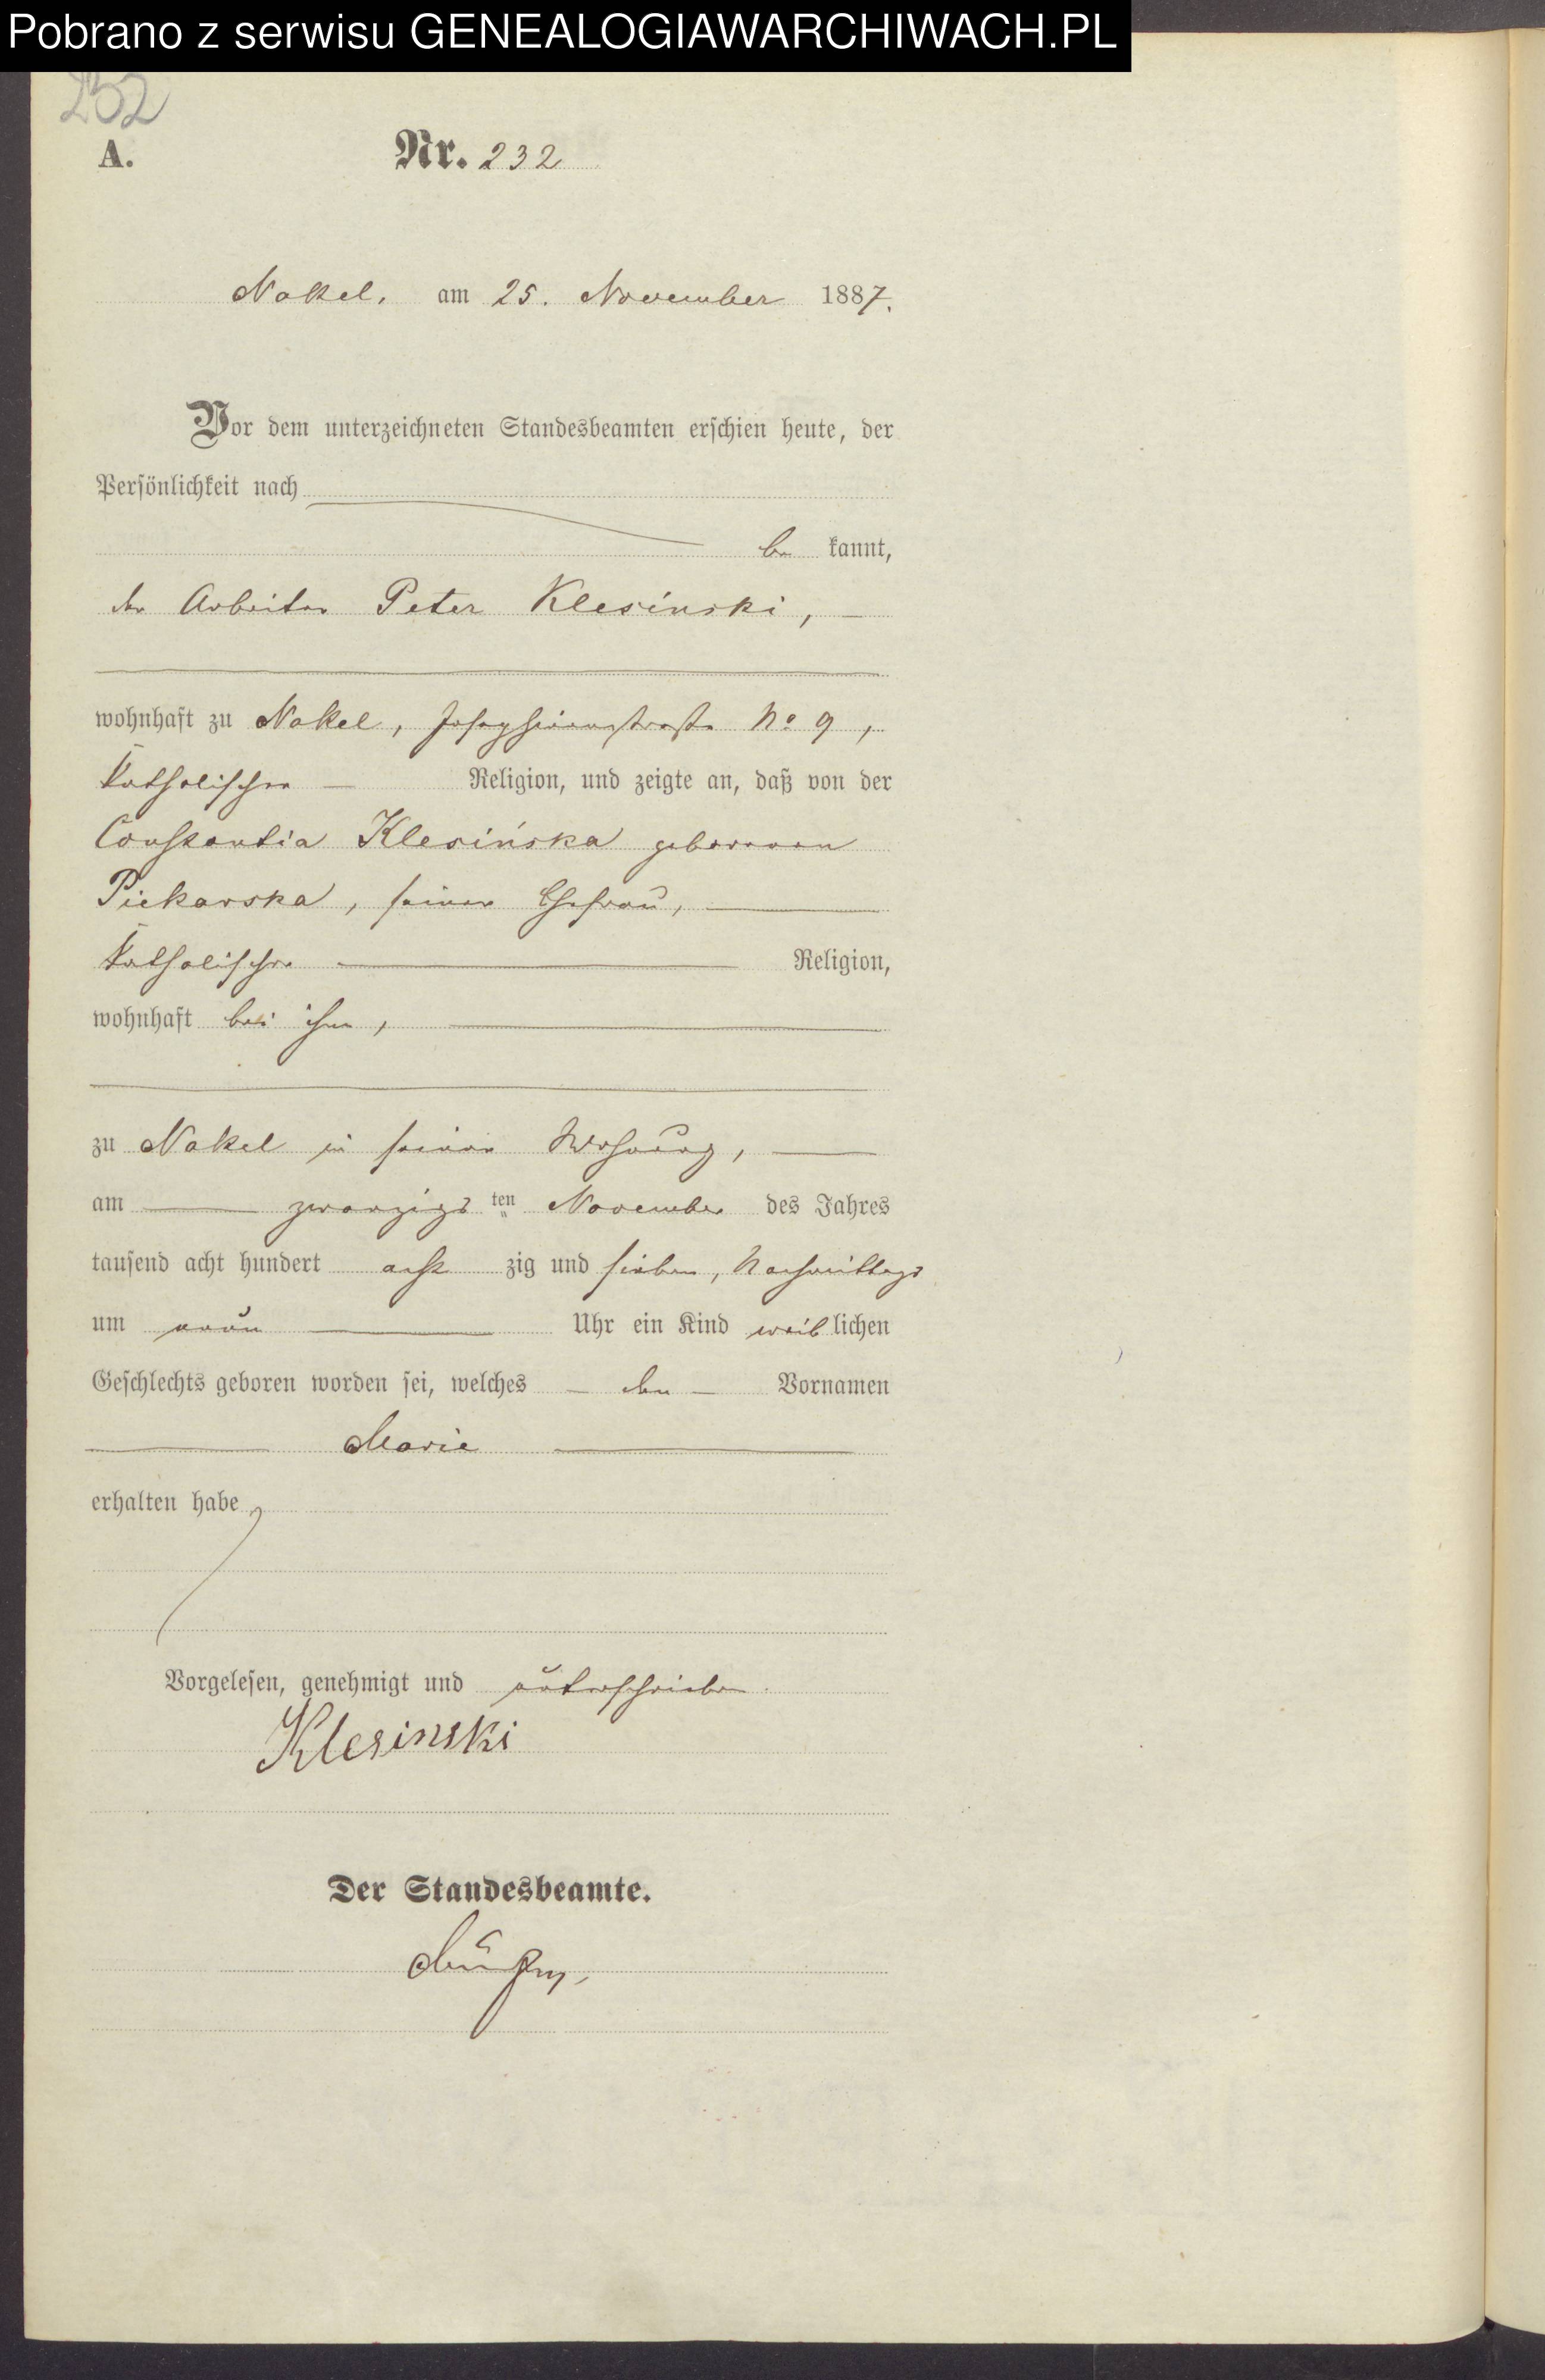 Pobrano z serwisu GENEALOGIAWARCHIWACH.PL
232
A. Nr. 232
Nakel, am 25. November 1887.
Vor dem unterzeichneten Standesbeamten erschien heute, der
Persönlichkeit nach
be kannt,
der Arbeiter Peter Klesinski,
wohnhaft zu Nakel, Josephinenstraße No 9,
katholischer Religion, und zeigte an, daß von der
Constantia Klesińska geborenen
Piekarska, seiner Ehefrau,
katholischer Religion,
wohnhaft bei ihm,
zu Nakel in seiner Wohnung,
am zwanzigs ten November des Jahres
tausend acht hundert acht zig und sieben, Nachmittags
um neun Uhr ein Kind weib lichen
Geschlechts geboren worden sei, welches den Vornamen
Marie
erhalten habe
Vorgelesen, genehmigt und unterschrieben.
Klesinski
Der Standesbeamte.